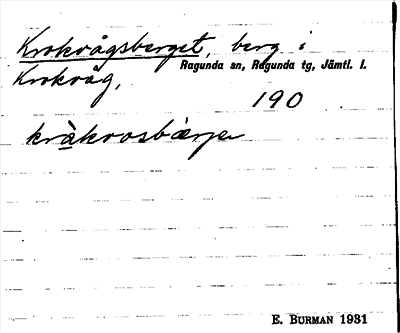 Krokvågsberget, berg i
Krokvåg, Ragunda sn, Ragunda tg, Jämtl. l.
190
kràkvosbàrje
E. BURMAN 1931